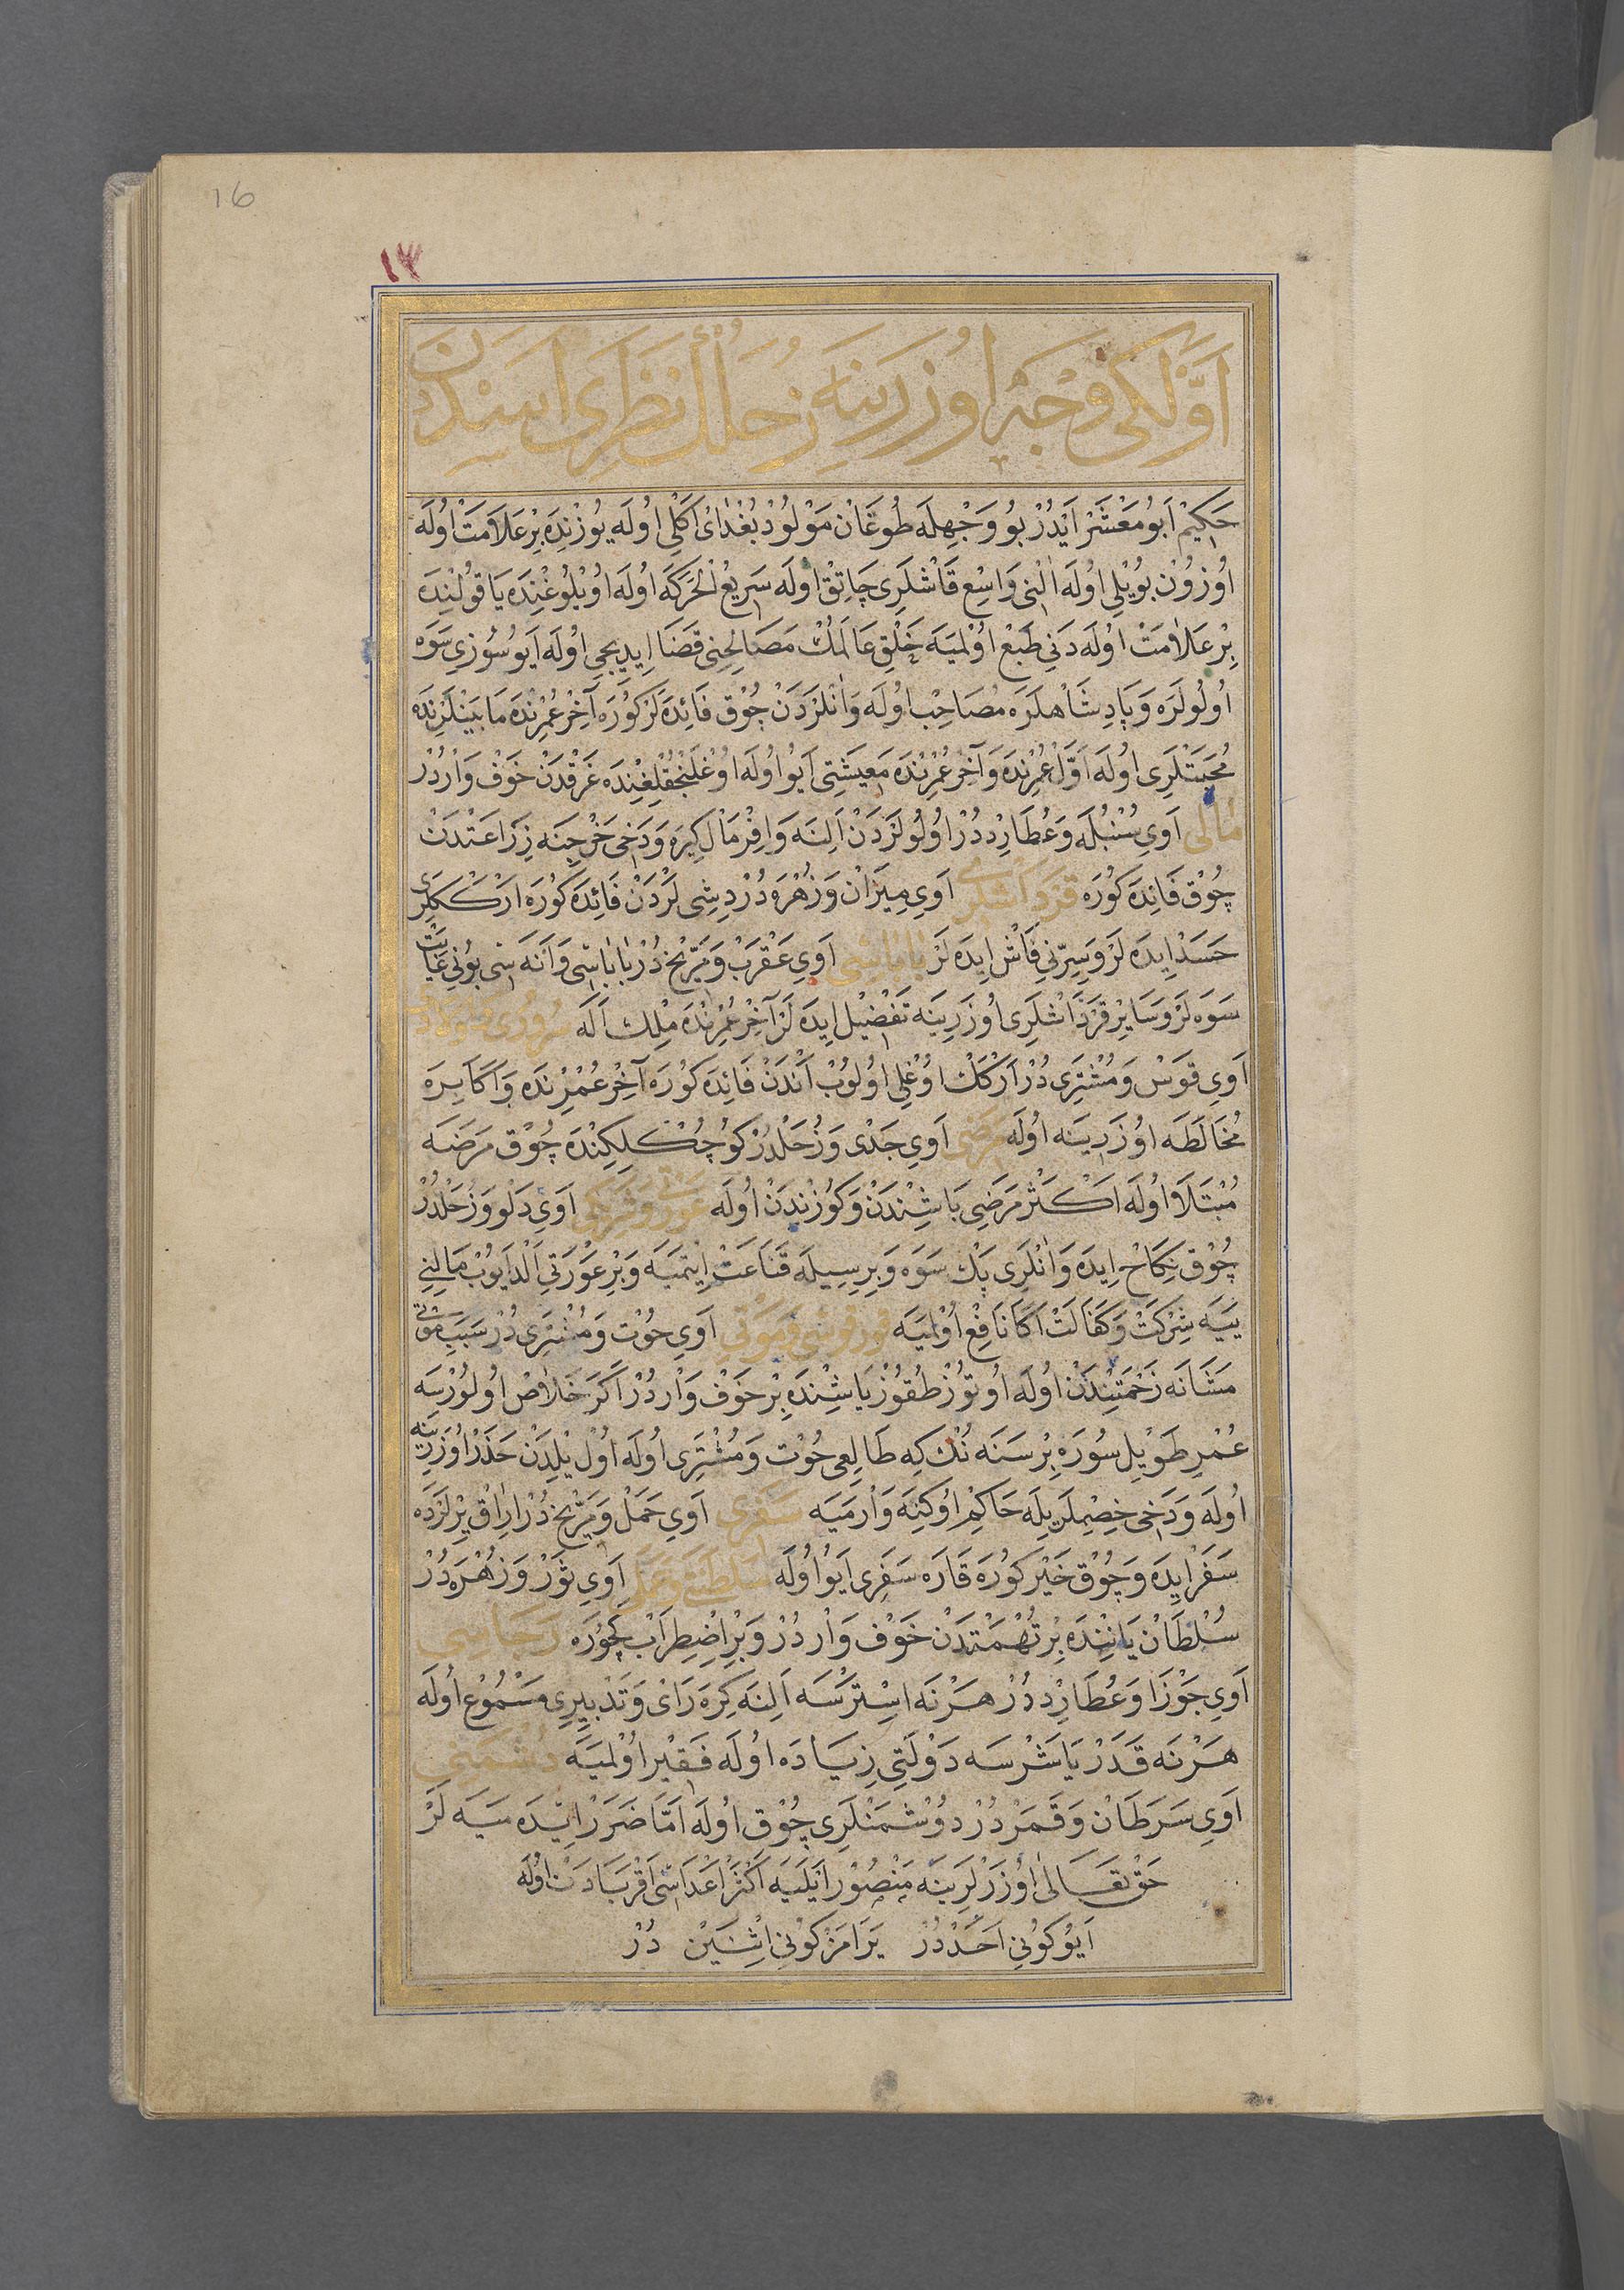 16
١٣
اَوَّلْكِى وَجْهْ اُوزَرِينَه زُحَلُكْ نَظَرِى اَسَدْدَنْ
حَكِيمْ اَبُو مَعْشَرْ اَيْدُرْ بُو وَجْهِلَه طُوغَانْ مَوْلُودْ بُغْدَاىْ اَكْلِى اُولَه يُوزِنْدَه بِرْ عَلَامَتْ اُولَه
اُوزُونْ بُويْلِى اُولَه اَلْنِى وَاسِعْ قَاشْلَرِى چَاتِقْ اُولَه سَرِيعُ الْحَرَكَه اُولَه اُويْلُوغِنْدَه يَا قُولِنْدَه
بِرْ عَلَامَتْ اُولَه دَنِى طَبْعْ اُولْمَيَه خَلْقِ عَالَمُكْ مَصَالِحِنِى قَضَا اِيدِيجِى اُولَه اَيُو سُوزِى سَوَه
اُولُولَرَه وَپَادِشَاهْلَرَه مُصَاحِبْ اُولَه وَاَنْلَرْدَنْ چُوقْ فَائِدَه لَرْ كُورَه آخِرْ عُمْرِنْدَه مَابَيْنْلَرِنْدَه
مُحَبَّتْلَرِى اُولَه اَوَّلْ عُمْرِنْدَه وَآخِرْ عُمْرِنْدَه مَعِيشَتِى اَيُو اُولَه اُوغْلَنْجُقْلِغِنْدَه غَرْقْدَنْ خَوْفْ وَارْدُرْ
مَالِى اَوِى سُنْبُلَه وَعُطَارِدْدُرْ اُولُولَرْدَنْ اَلِنَه وَافِرْ مَالْ كِيرَه وَدَخِى خَرْجِنَه زِرَاعَتْدَنْ
چُوقْ فَائِدَه كُورَه قَرَنْدَاشْلَرِى اَوِى مِيزَانْ وَزُهْرَه دُرْ دِيشِى لَرْدَنْ فَائِدَه كُورَه اَرْكَكْلَرِى
حَسَدْ اِيدَه لَرْ وَسِرِّنِى فَاشْ اِيدَه لَرْ بَابَاسِى اَوِى عَقْرَبْ وَمِرِّيخْ دُرْ بَابَاسِى وَاَنَه سِى بُونِى غَايَتْ
سَوَه لَرْ وَسَايِرْ قَرَنْدَاشْلَرِى اُوزَرِينَه تَفْضِيلْ اِيدَه لَرْ آخِرْ عُمْرِنْدَه مِلْكْ اَلَه سُرُورِى وَاَوْلَادِى
اَوِى قَوْسْ وَمُشْتَرِى دُرْ اَرْكَكْ اُوغْلِى اُولُوبْ اَنْدَنْ فَائِدَه كُورَه آخِرْ عُمْرِنْدَه وَاَكَابِرَه
مُخَالَطَه اُوزَرِينَه اُولَه مَرَضِى اَوِى جَدْى وَزُحَلْدُرْ كُوچُكْلِكِنْدَه چُوقْ مَرَضَه
مُبْتَلَا اُولَه اَكْثَرْ مَرَضِى بَاشِنْدَنْ وَكُوزْنْدَنْ اُولَه عَوْرَتِى وَشَرِيكِى اَوِى دَلْو وَزُحَلْدُرْ
چُوقْ نِكَاحْ اِيدَه وَاَنْلَرِى پَكْ سَوَه وَبِرِيسِيلَه قَنَاعَتْ اِيتْمَيَه وَبِرْ عَوْرَتِى اَلْدَايُوبْ مَالِنِى
يِيَه شِرْكَتْ وَكَفَالَتْ اَكَا نَافِعْ اُولْمَيَه قُورْقُوسِى وَمَوْتِى اَوِى حُوتْ وَمُشْتَرِى دُرْ سَبَبِ مَوْتِى
مَثَانَه زَحْمَتِنْدَنْ اُولَه اُوتُوزْ طُقُوزْ يَاشِنْدَه بِرْ خَوْفْ وَارْدُرْ اَكَرْ خَلَاصْ اُولُورْسَه
عُمْرِ طَوِيلْ سُورَه بِرْ سَنَه نُكْ كِه طَالِعِى حُوتْ وَمُشْتَرِى اُولَه اُولْ يِلْدَنْ حَذَرْ اُوزَرِينَه
اُولَه وَدَخِى خِصِمْلَرِيلَه حَاكِمْ اُوكِنَه وَارْمَيَه سَفَرِى اَوِى حَمَلْ وَمِرِّيخْ دُرْ اِرَاقْ يِرْلَرْدَه
سَفَرْ اِيدَه وَچُوقْ خَيْرْ كُورَه قَارَه سَفَرِى اَيُو اُولَه سَلْطَنَتِى وَعَمَلِى اَوِى ثَوْرْ وَزُهْرَه دُرْ
سُلْطَانْ يَانِنْدَه بِرْ تُهْمَتْدَنْ خَوْفْ وَارْدُرْ وَبِرْ اِضْطِرَابْ كِچُورَه رَجَاسِى
اَوِى جَوْزَا وَعُطَارِدْ دُرْ هَرْ نَه اِسْتَرْسَه اَلِنَه كِرَه رَاىْ وَتَدْبِيرِى مَسْمُوعْ اُولَه
هَرْ نَه قَدَرْ يَاشَرْسَه دَوْلَتِى زِيَادَه اُولَه فَقِيرْ اُولْمَيَه دُشْمَنِى
اَوِى سَرَطَانْ وَقَمَرْ دُرْ دُوشْمَنْلَرِى چُوقْ اُولَه اَمَّا ضَرَرْ اِيدَه مَيَه لَرْ
حَقْ تَعَالَى اُوزَرْلَرِينَه مَنْصُورْ اَيْلَيَه اَكْثَرْ اَعْدَاسِى اَقْرِبَادَنْ اُولَه
اَيُو كُونِى اَحَدْدُرْ يَرَامَزْ كُونِى اِثْنَيْنْ دُرْ